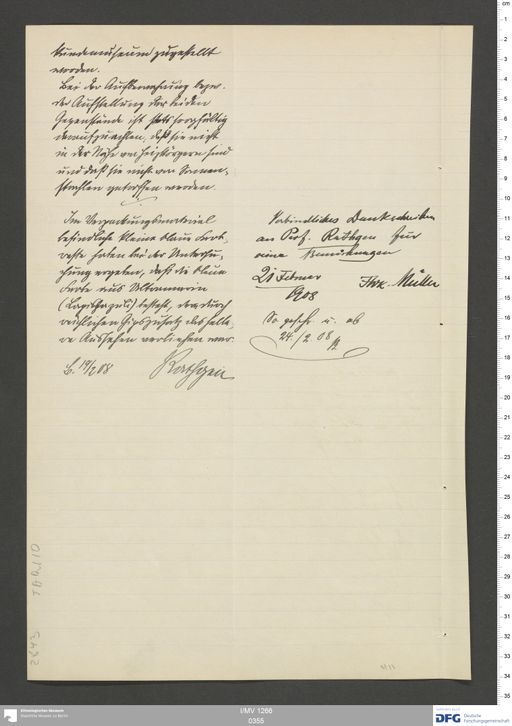 kundemuseum zugestellt
worden.
Bei der Aufbewahrung bezw.
der Aufstellung der beiden
Gegenstände ist stets sorgfältig
darauf zu achten, daß sie nicht
in der Nähe von Heizkörpern sind
und daß sie nicht von Sonnen-
strahlen getroffen werden.
Im Verpackungsmaterial
befindliche kleine blaue Farb-
reste haben bei der Untersu-
chung ergeben, daß die blaue
Farbe aus Ultramarin
(Lapislazuli) besteht, der durch
reichlichen Gipszusatz das helle-
re Aussehen verliehen war.
B. 19/2 08 Rathgen
Verbindliches Dankschreiben
an Prof. Rathgen für
seine Bemühungen
21 Februar
1908
F.W.K. Müller
So gesch. u. ab
24./2 08
2643 TA Q 110
Ethnologisches Museum
Staatliche Museen zu Berlin
I/MV 1266
0355
gefördert durch
DFG Deutsche
Forschungsgemeinschaft
cm
1
2
3
4
5
6
7
8
9
10
11
12
13
14
15
16
17
18
19
20
21
22
23
24
25
26
27
28
29
30
31
32
33
34
35